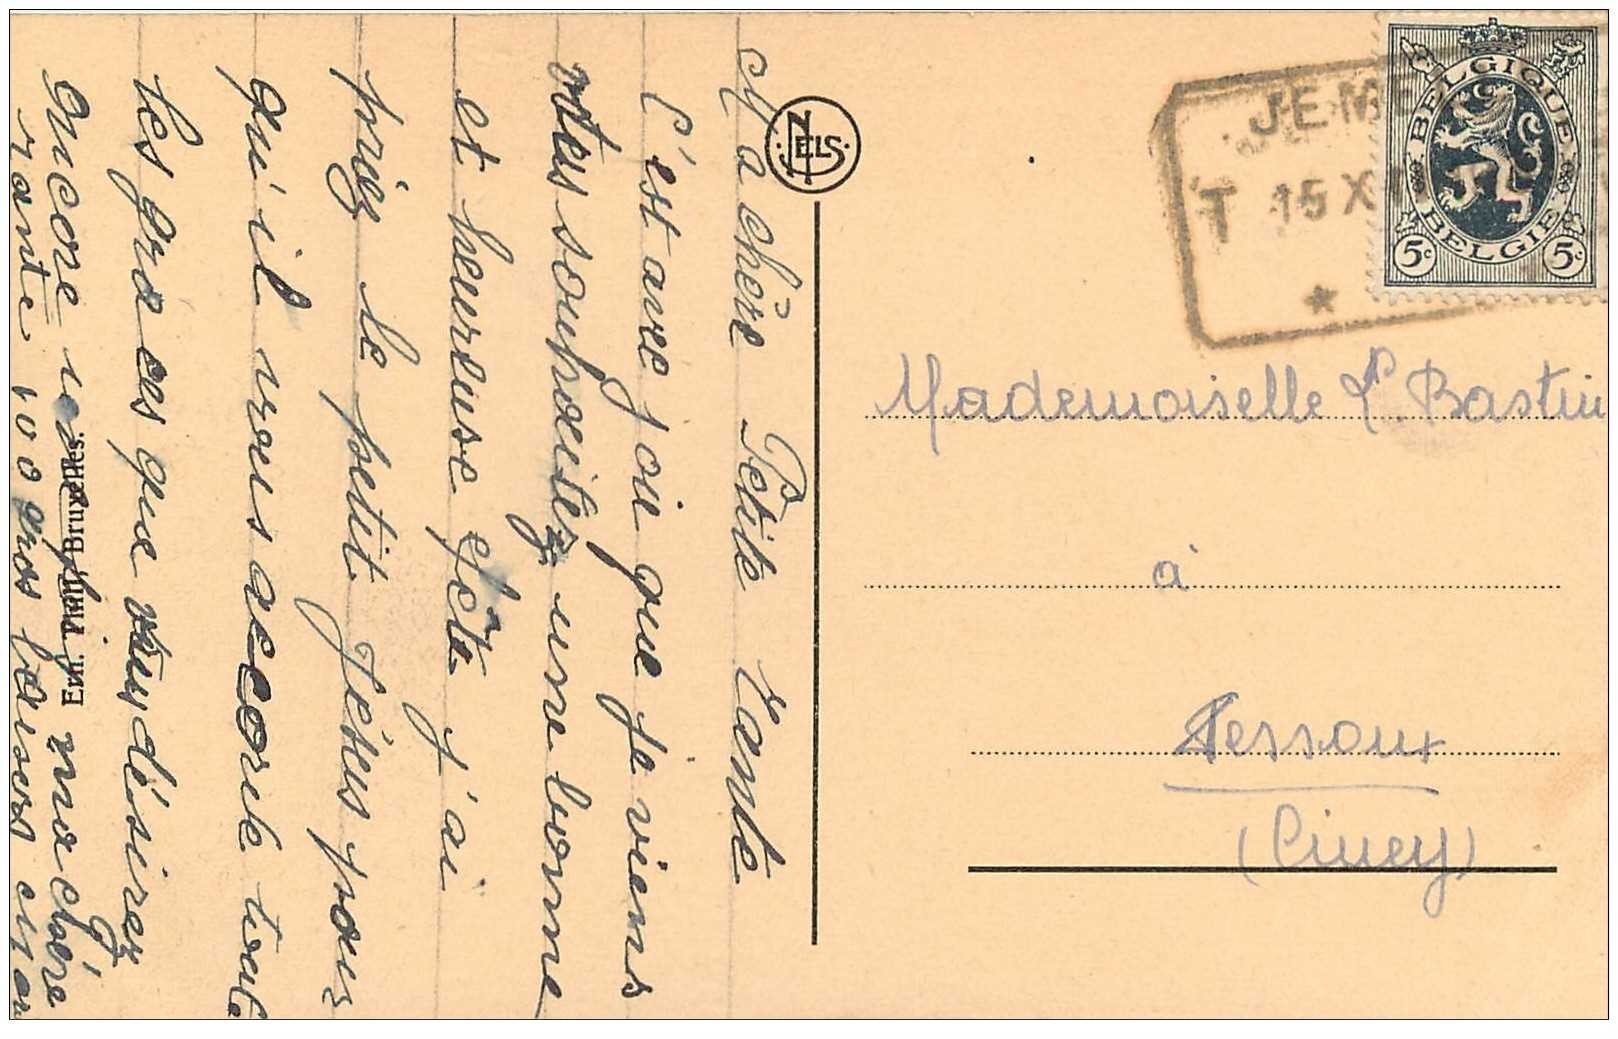 Ma chère Petite tante
C'est avec joie que je viens
vous souhaitez une bonne
et heureuse fête j'ai
priez le petit Jésus pour
qu'il vous accorde toute
les graces que vous désirez
encore ma chère
tante 100 gros baisers
NELS
Ern. Thill, Bruxelles.
JEME
T 15 X
*
BELGIQUE
BELGIE
5c 5c
Mademoiselle L. Bastin
à
Sessoux
(Ciney)